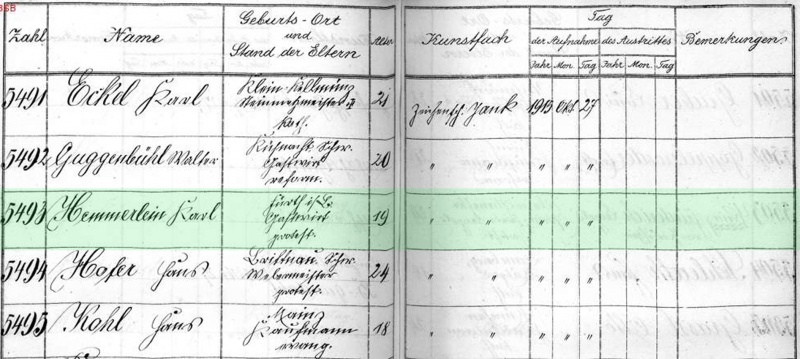 Zahl Name Geburts-Ort und Stand der Eltern Alter Kunstfach Tag der Aufnahme des Austrittes Bemerkungen
Jahr Mon. Tag Jahr Mon. Tag
5491 Eckel Karl Klein-Kellmünz Steinmetzmeister kath. 21 Zeichensch. Jank 1913 Okt. 27
5492 Guggenbühl Walter Küsnacht Schw. Gastwirt reform. 20 " " " " "
5493 Hemmerlein Karl Fürth i. B. Gastwirt protest. 19 " " " " "
5494 Hofer Hans Schw. Webermeister protest. 24 " " " " "
5495 Kohl Hans Mainz Kaufmann evang. 18 " " " " "